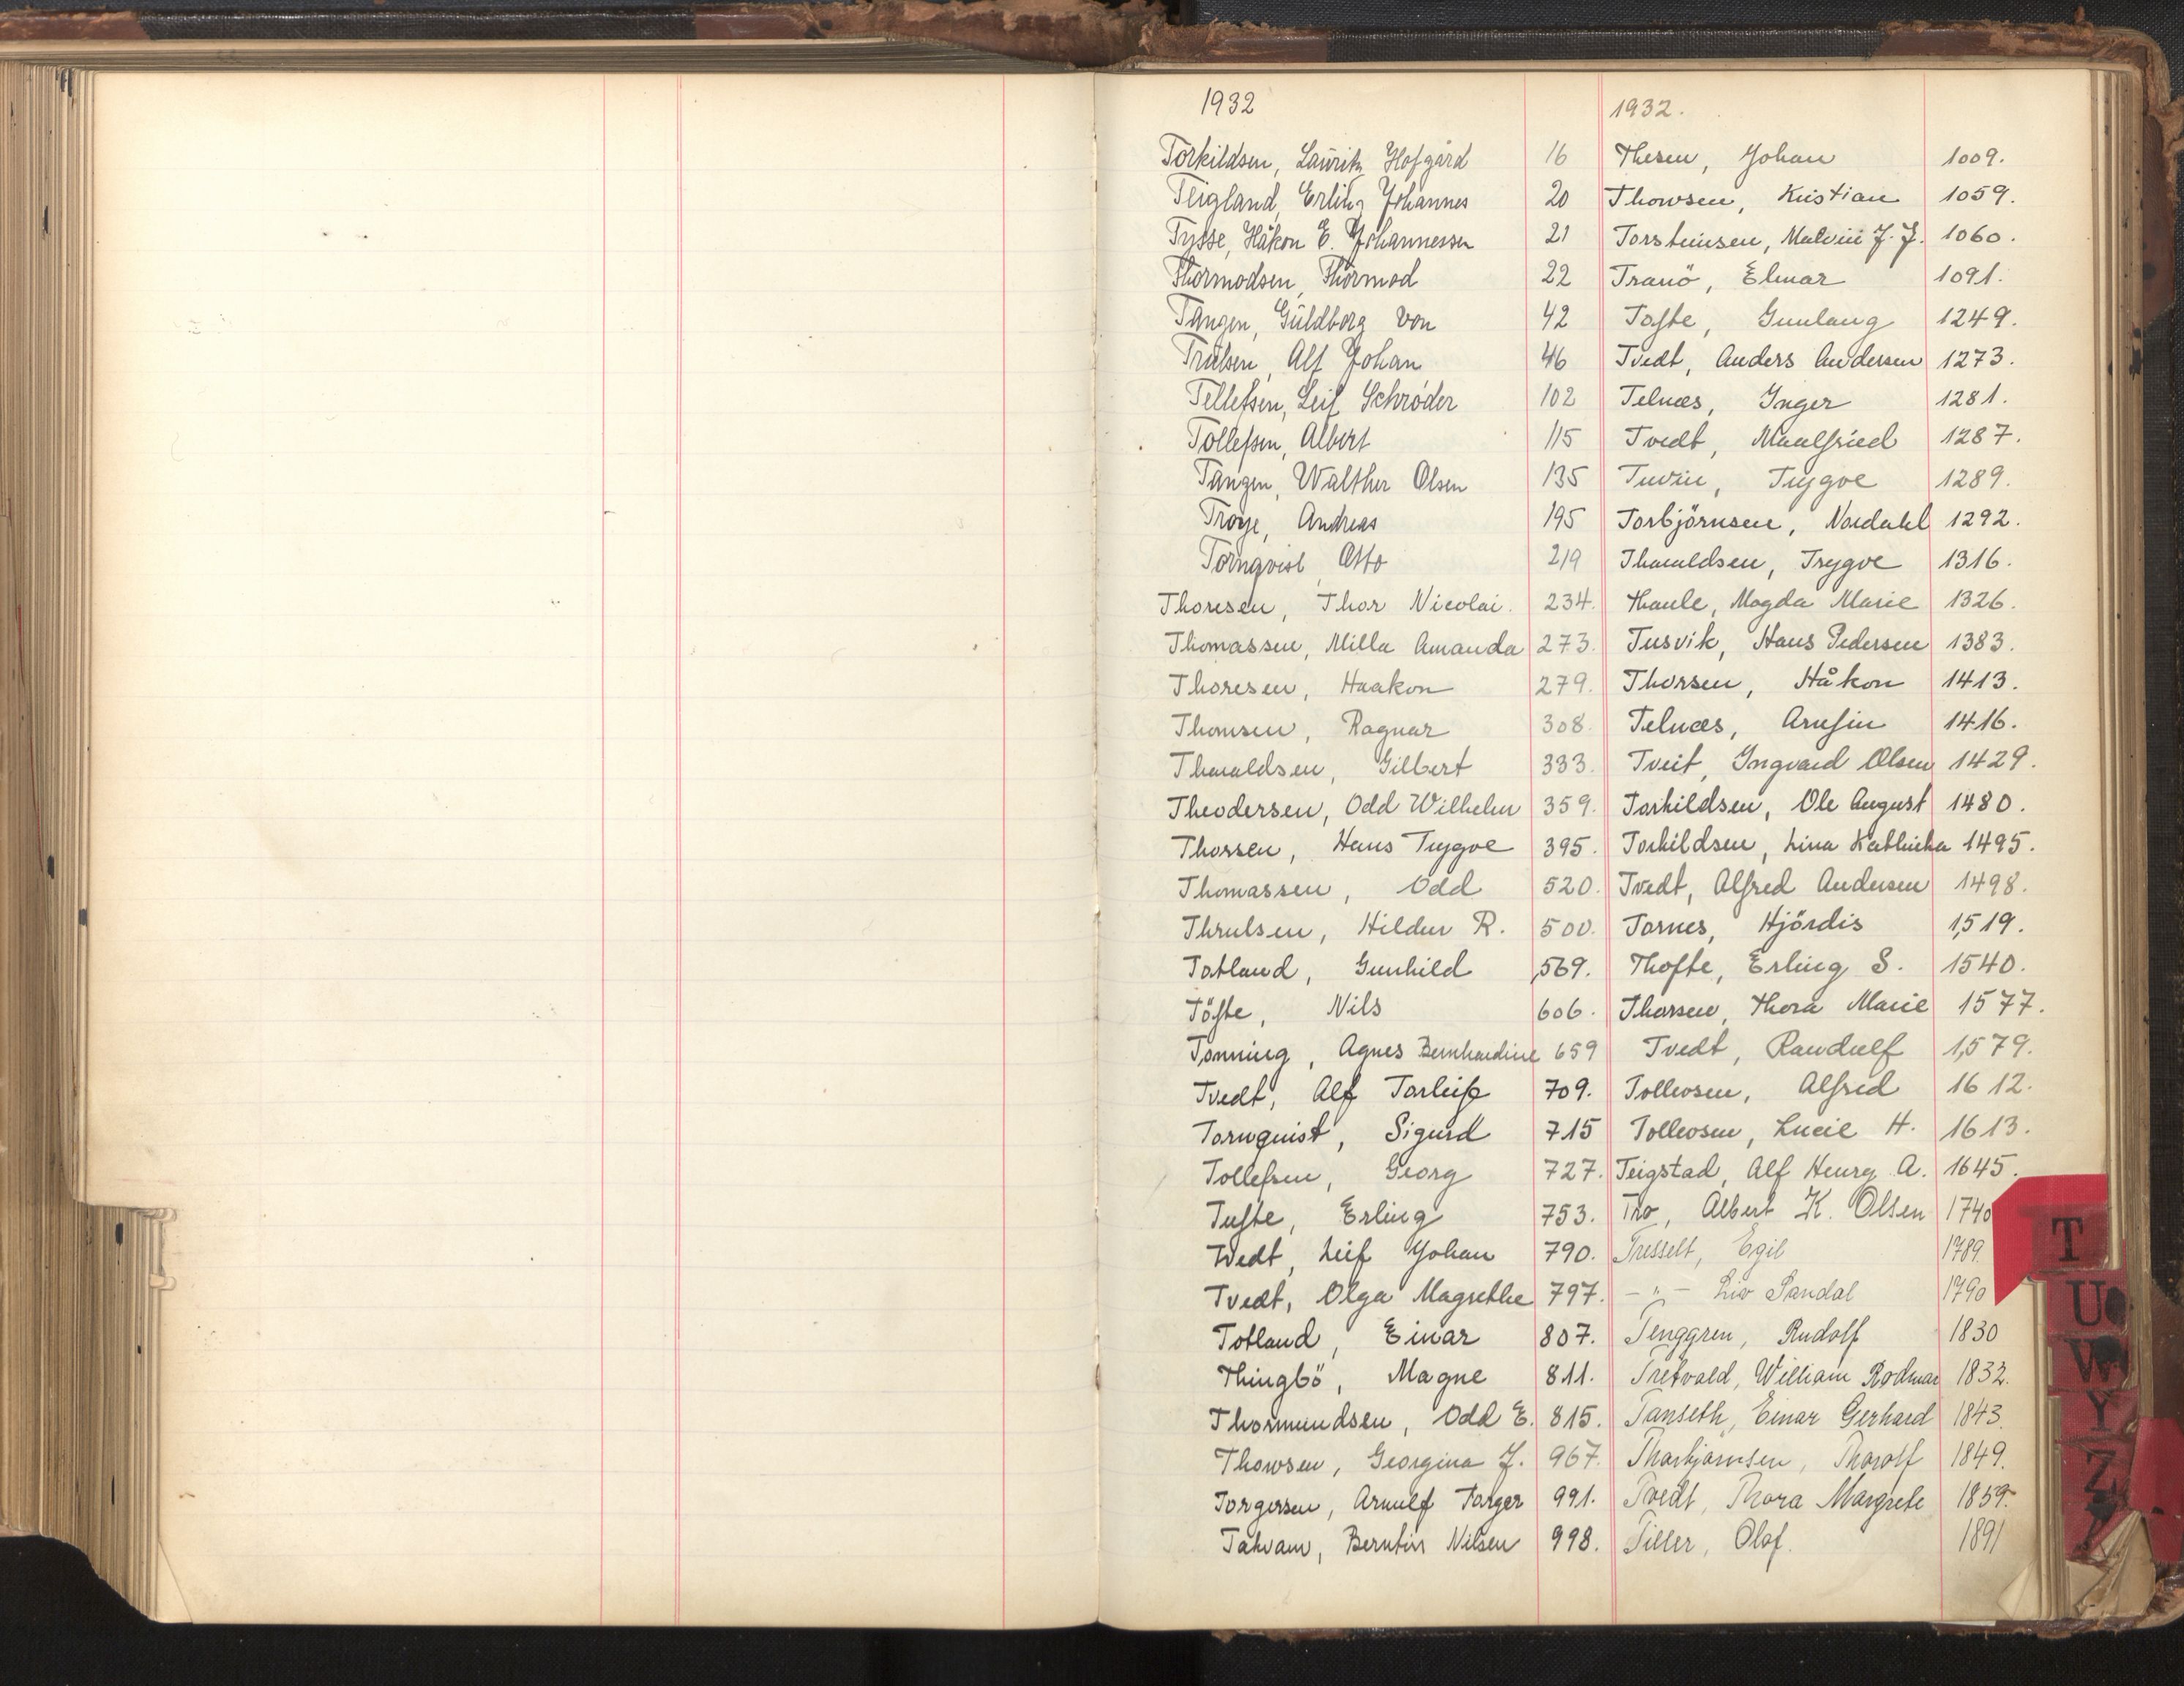 1932
Torkildsen, Lauritz Hofgård 16
Teigland, Erling Johannes 20
Tysse, Håkon E. Johannessen 21
Thormodsen, Thormod 22
Tangen, Guldborg von 42
Trulsen, Alf Johan 46
Tellefsen, Leif Schröder 102
Tollefsen, Albert 115
Tangen, Walther Olsen 135
Troye, Andreas 195
Tornqvist, Otto 219
Thoresen, Thor Nicolai. 234.
Thomassen, Milla Amanda 273.
Thoresen, Haakon 279.
Thomsen, Ragnar 308
Tharaldsen, Gilbert 333.
Theodersen, Odd Wilhelm 359.
Thorsen, Hans Trygve 395.
Thomassen, Odd 520.
Thrulsen, Hildur R. 500.
Totland, Gunhild 569.
Töfte, Nils 606.
Tonning, Agnes Bernhardine 659
Tvedt, Alf Torleif 709.
Tornquist, Sigurd 715
Tollefsen, Georg 727.
Tufte, Erling 753.
Tvedt, Leif Johan 790.
Tvedt, Olga Magrethe 797.
Totland, Einar 807.
Thingbö, Magne 811.
Thormundsen, Odd E. 815.
Thowsen, Georgina J. 967.
Torgersen, Arnulf Torger 991.
Takvam, Berntin Nilsen 998.
1932.
Thesen, Johan 1009.
Thowsen, Kristian 1059.
Torsteinsen, Malvin J. J. 1060.
Tranö, Elmar 1091.
Tofte, Gunlaug 1249.
Tvedt, Anders Andersen 1273.
Telnæs, Inger 1281.
Tvedt, Maalfried 1287.
Trygve 1289.
Torbjörnsen, Nordahl 1292.
Tharaldsen, Trygve 1316.
Thaule, Magda Marie 1326.
Tusvik, Hans Pedersen 1383.
Thorsen, Håkon 1413.
Telnæs, Arnfin 1416.
Tveit, Ingvard Olsen 1429.
Torkildsen, Ole August 1480.
Torkildsen, Lina Kathinka 1495.
Tvedt, Alfred Andersen 1498.
Tornes, Hjördis 1519.
Thofte, Erling S. 1540.
Thorsen, Thora Marie 1577.
Tvedt, Randulf 1579.
Tollevsen, Alfred 1612.
Tollevsen, Lucie H. 1613.
Teigstad, Alf Henry A. 1645.
Tro, Albert K. Olsen 1740
Tresselt, Egil 1789
– " – Liv Sandal 1790
Tenggren, Rudolf 1830
Tretvold, William Rodmar 1832.
Tanseth, Einar Gerhard 1843.
Thorbjørnsen, Thorolf 1849.
Tvedt, Thora Margrete 1859.
Tiller, Olaf. 1891
T
U
W
Y
Z